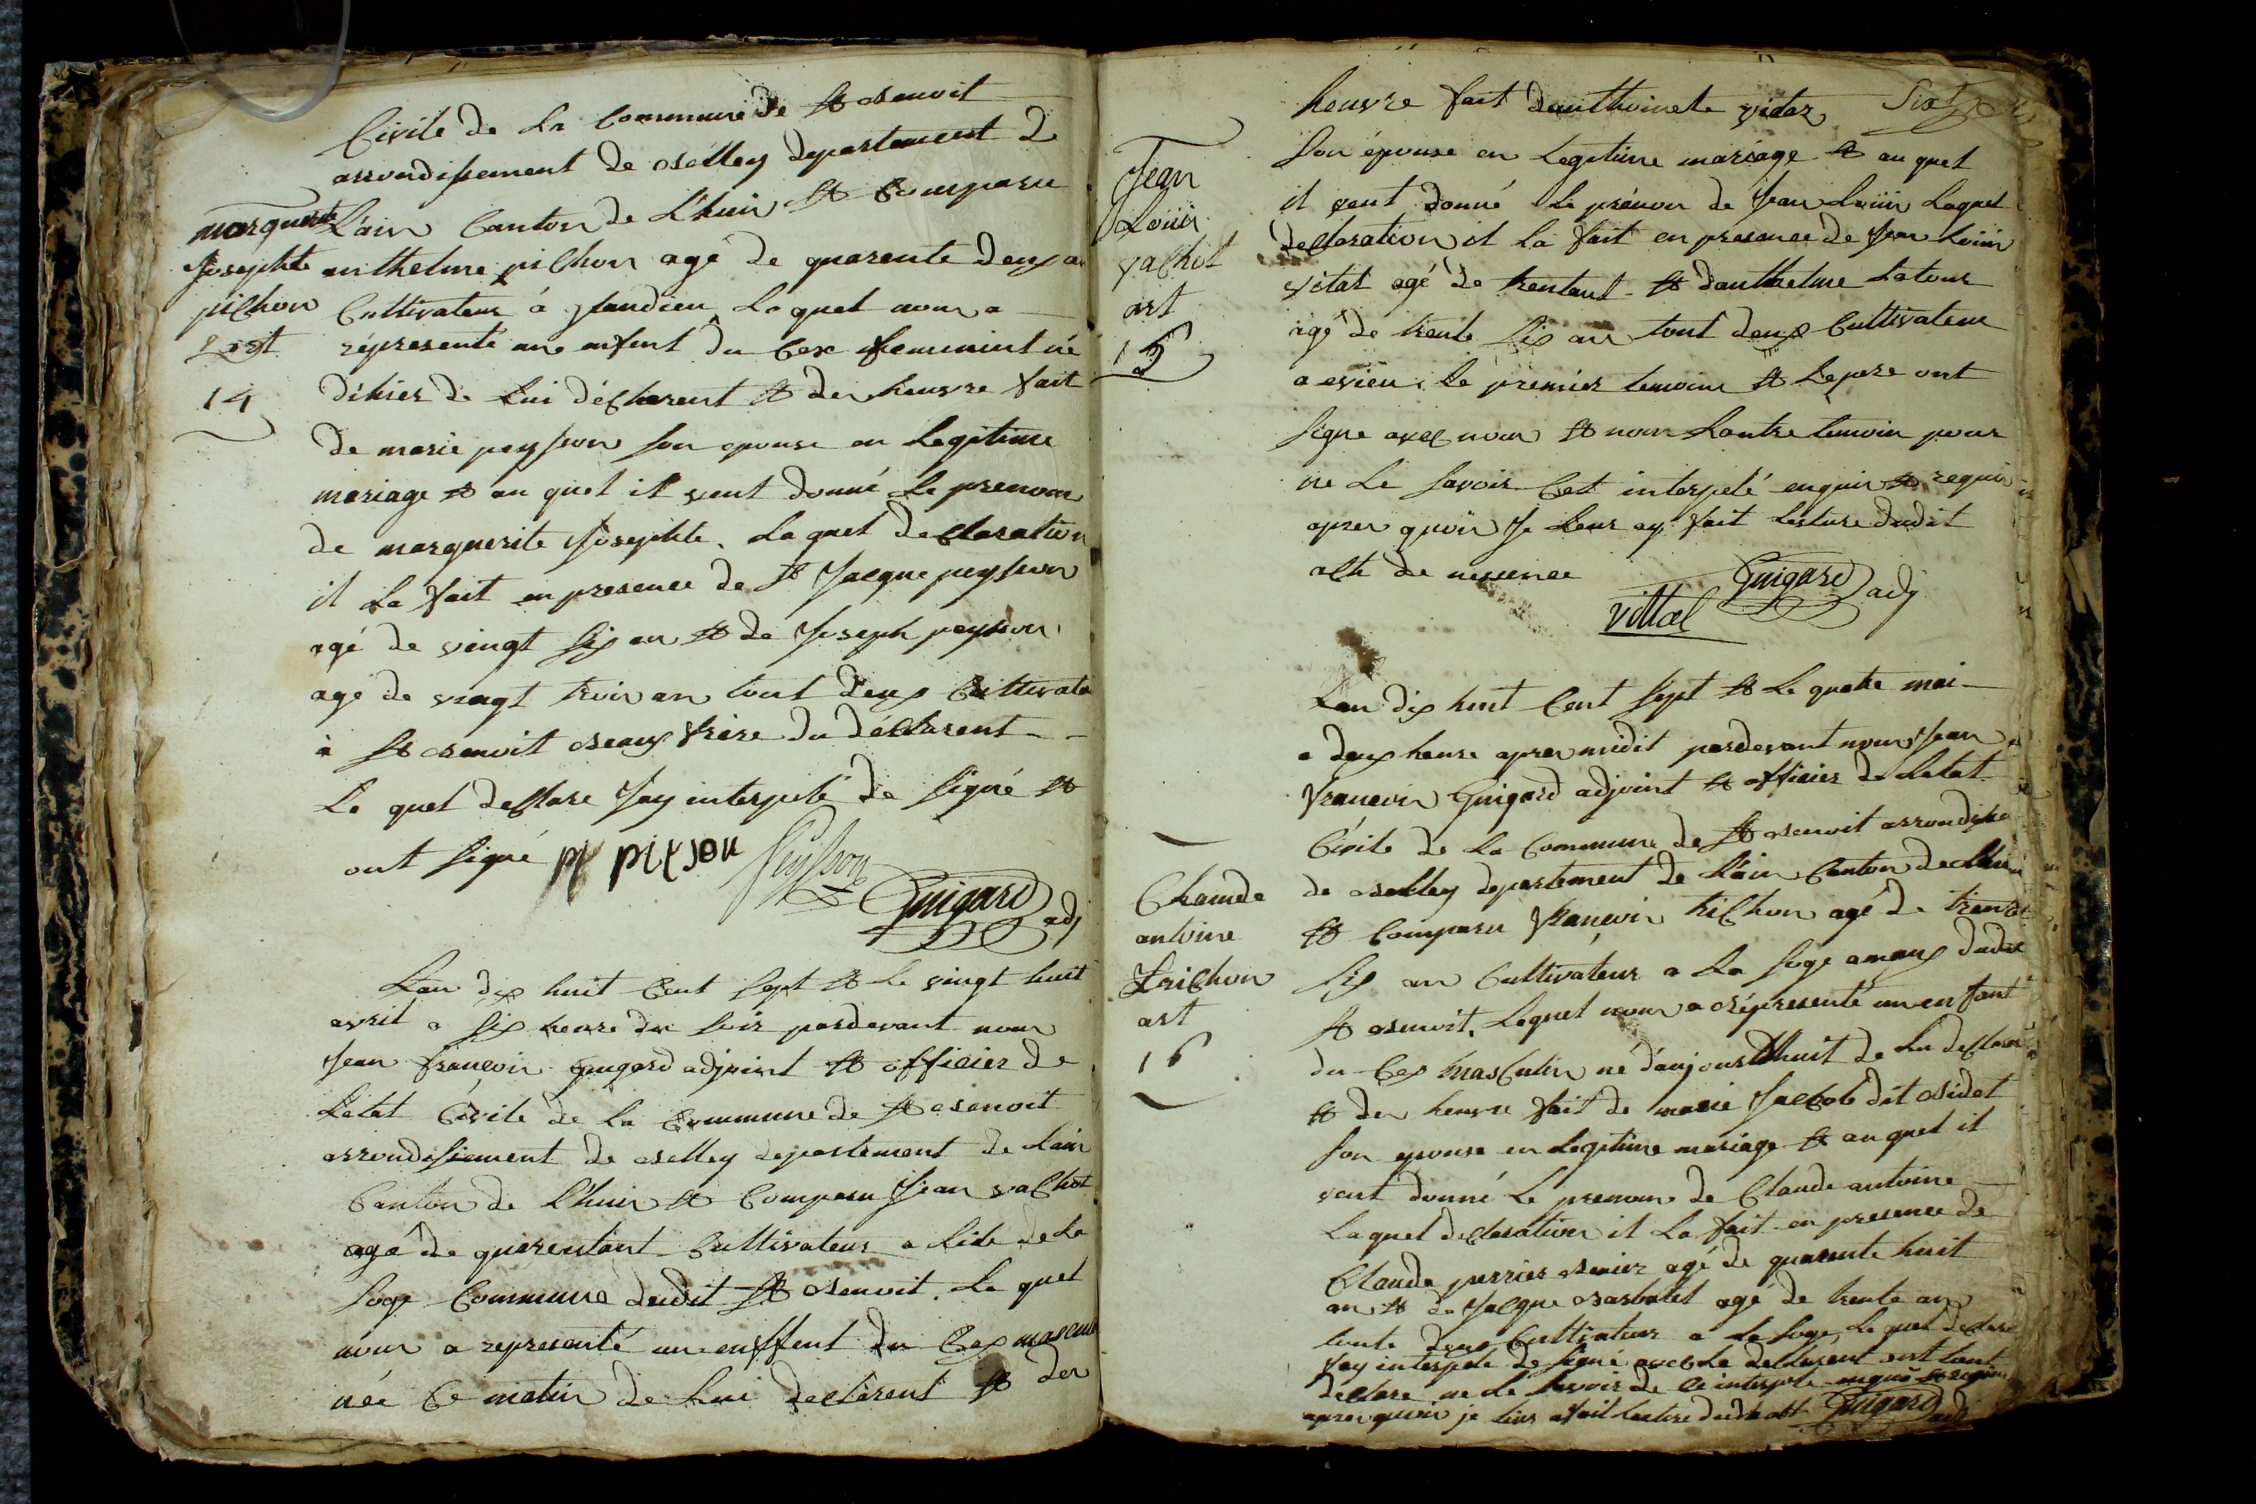 Civile de La Commune de St Benoit
arrondissement de Belley departement de
L'ain Canton de L'huis Et Comparu
anthelme pilhon agé de quarente deux an
Cultivateur à glandieu Le quel nous a
répresenté une enfent du Cexe feminient né
d'hier de Lui déClarent Et de heuvre fait
de marie peysson son epouse en Legitime
mariage Et au quel il veut donné Le prenom
de marguerite Josephte, La quel deClaration
il La fait en presence de St Jacque peysson
agé de vingt six an Et de Joseph peysson
age de vingt trois an tout deux Cultivate
à St Benoit Beaux frère du déClarent
Le quel deClare Jay interpelé de signé Et
ont signé pi pilson Peysson
Guigard adj
marguerite
Josephte
pilhon
art
14
Lan dix huit Cent sept Et Le vingt huit
avril a six heure du soir pardevant nous
Jean françois guigard adjoint Et officier de
Letat Civile de La Commune de St Benoit
arrondissement de Belley departement de Lain
Canton de L'huis Et Comparu Jean vaChot
agé de quarentant Cultivateur a Lile de La
soge Commune dudit St Benoit. Le quel
nous a representé un enffent du Cex masculin
née Ce matin de Lui declarent Et der
heuvre fait danthoinete vidaz
son épouse en Legitime mariage Et au quel
il veut donné Le prénom de Jean Louis Laquel
declaration il La fait en presence de Jean Louis
vital agé de trentant Et danthelme Latour
agé de trente six an tout deux Cultivateur
a evieu. Le premier temoins Et Le pere ont
signe avec nous Et nom Lautre temoin pour
ne Le savoir Cest interpelé enquis Et requis
apres quois Je Leur ay fait Lecture dudit
alte de nessence
Guigard adj
vittal
Jean
Louis
vaChot
art
15
Lan dix huit Cent sept Et Le quatre mai
a deux heure apres midit pardevant nous Jean
françois Guigard adjoint Et officier de Letat
Civile de La Commune de St Benoit arrondisse
de Belley departement de L'ain Canton de Lhuis
Et Comparu françois triChon agé de trente
six an Cultivateur a La soge amaux dudit
St Benoit. Lequel nous a répresenté un enfant
du Cex masculin né d'aujourdhuit de Lui declarent
Et der heuvre fait de marie JaCob dit Bidet
son epouse en Legitime mariage Et au quel il
veut donné Le prenom de Claude antoine
Laquel declaration il La fait en presence de
Claude perrier Benier agé de quarente huit
an Et de Jacque Barbaret agé de trente an
toute deux Cultivateur a La soge, Le quel declare
Jay interpele de signé avec Le declarent ont tout
declare ne Le savoir de Ce interpele enquis Et requis
apres quois je Leur a fait Lecture dudit alt Guigard adj
Chaude
antoine
TriChon
art
16